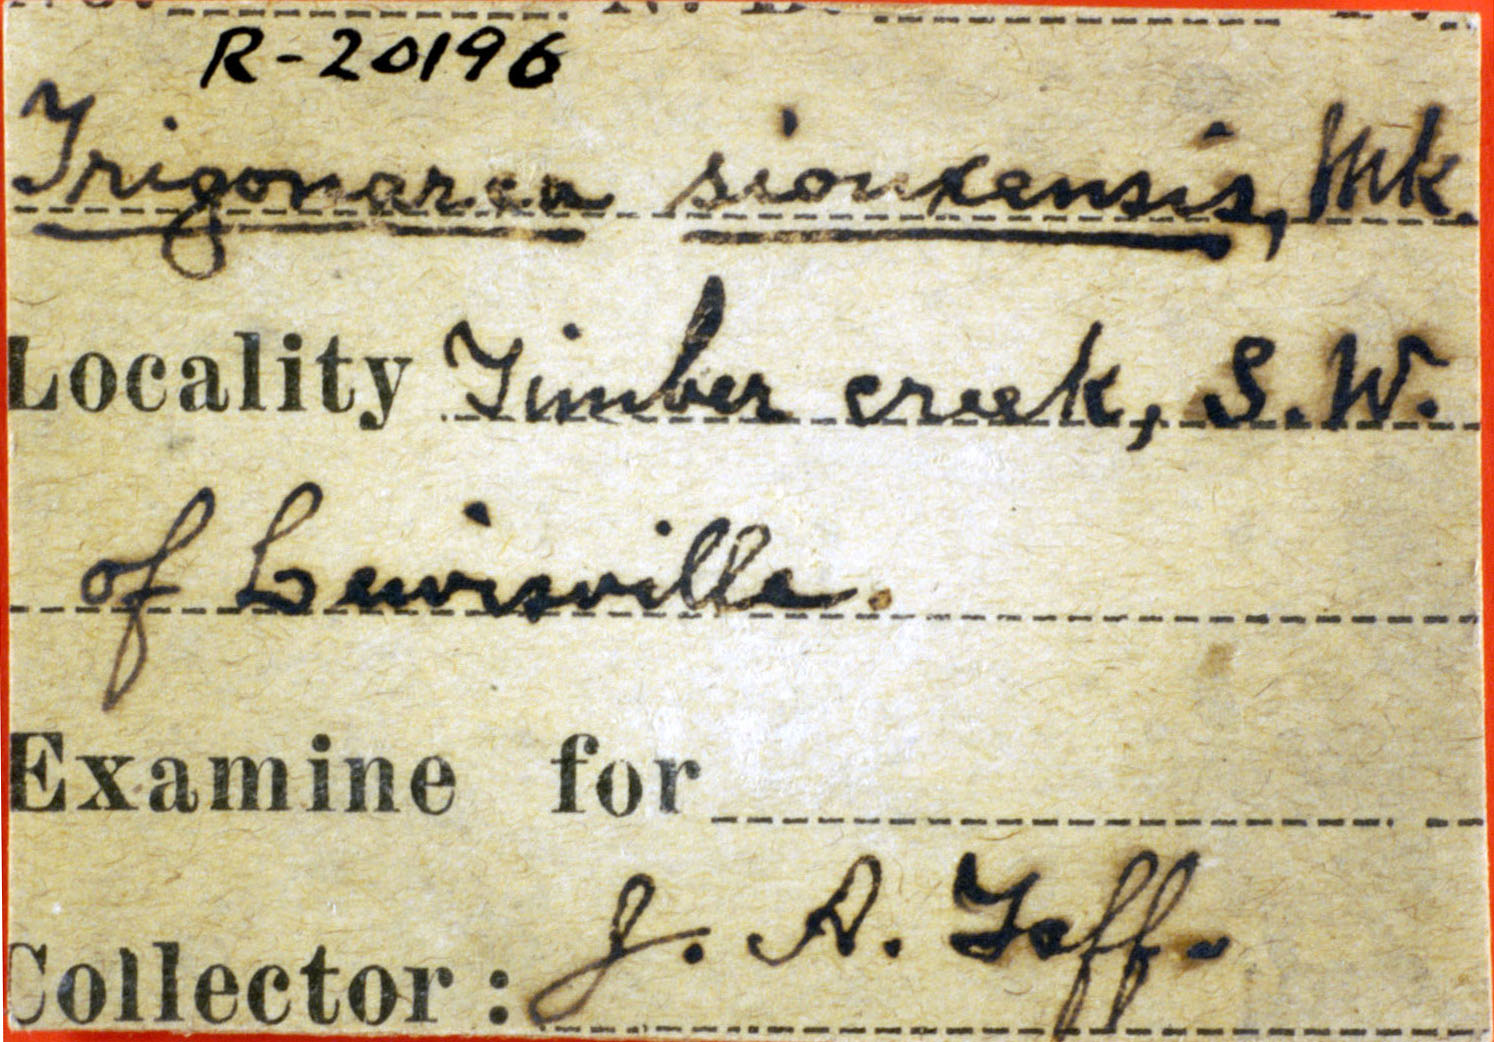 R-20196
Trigonarca siouxensis, Mk.
Locality Timber creek, S.W.
of Lewisville.
Examine for
Collector: J. A. Taff.